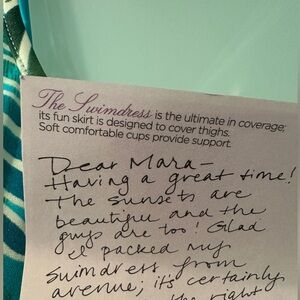 The Swimdress is the ultimate in coverage;
its fun skirt is designed to cover thighs.
Soft comfortable cups provide support.
Dear Mara-
Having a great time!
The sunsets are
beautiful and the
guys are too! Glad
I packed my
swimdress from
avenue; it's certainly
the right